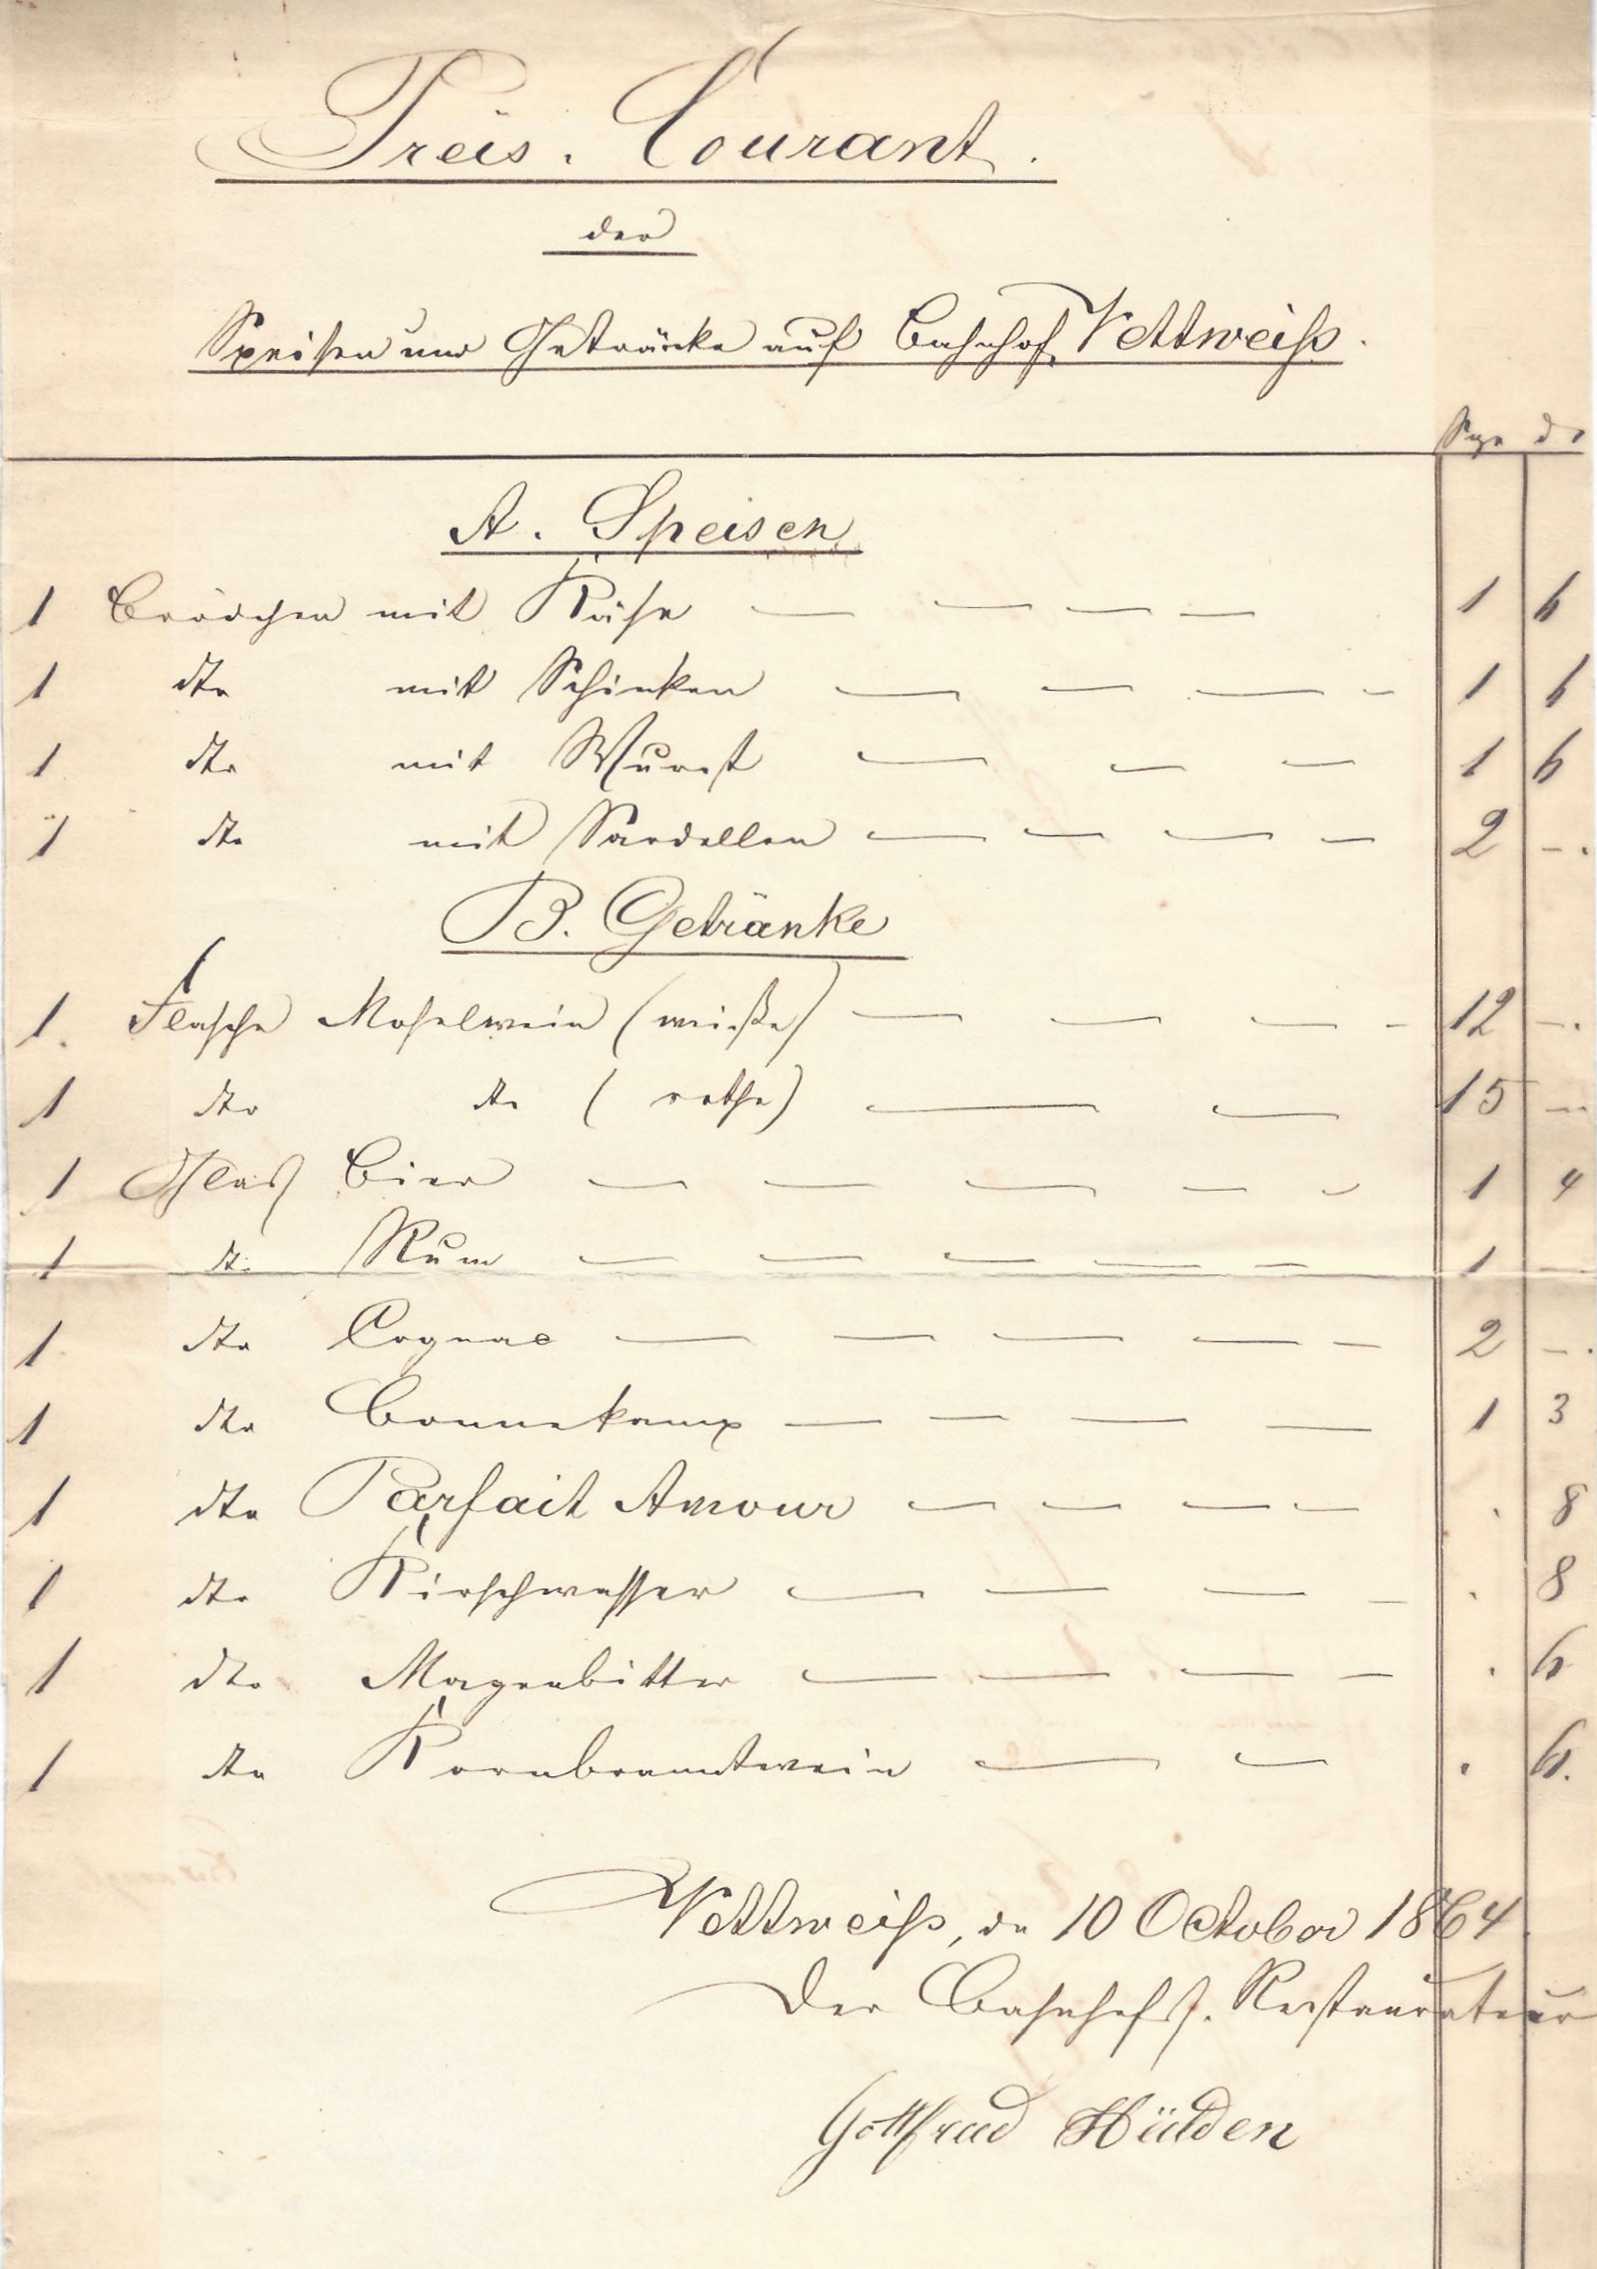 Preis. Courant.
der
Speisen und Getränke auf Bahnhof Vettweiß.
Sgr d
A. Speisen
1 Brödchen mit Käse — — — — 1 6
1 dto mit Schinken — — — - 1 6
1 dto mit Wurst — — — 1 6
1 dto mit Sardellen — — — — 2 -.
B. Getränke
1. Flasche Moselwein (weiße) — — — - 12 -.
1 dto dto (rothe) — — 15 —
1 Glas Bier — — — — - 1 4
1 dto Rum — — — — — 1 —
1 dto Cognac — — — — — 2 -.
1 dto Bonnekamp — — — — 1 3
1 dto Parfait Amour — — — — . 8
1 dto Kirschwasser — — — — . 8
1 dto Magenbitter — — — — . 6
1 dto Kornbranntwein — — . 6.
Vettweiß, den 10 October 1864
Der Bahnhofs. Restaurateur
Gottfried Hülden